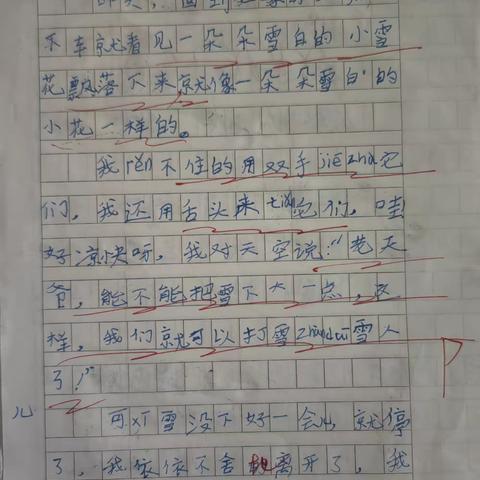 下车就看见一朵朵雪白的小雪
花飘落下来,就像一朵朵雪白的
小花一样的。
我rěn不住的用双手jiē zhù它
们,我还用舌头来tiǎn它们,哇
好凉快呀,我对天空说:"老天
爷,能不能把雪下大一点,这
样,我们就可以打雪zhàng duī雪人
了!"
可xī雪没下好一会儿就停
了,我依依不舍地离开了,我
儿